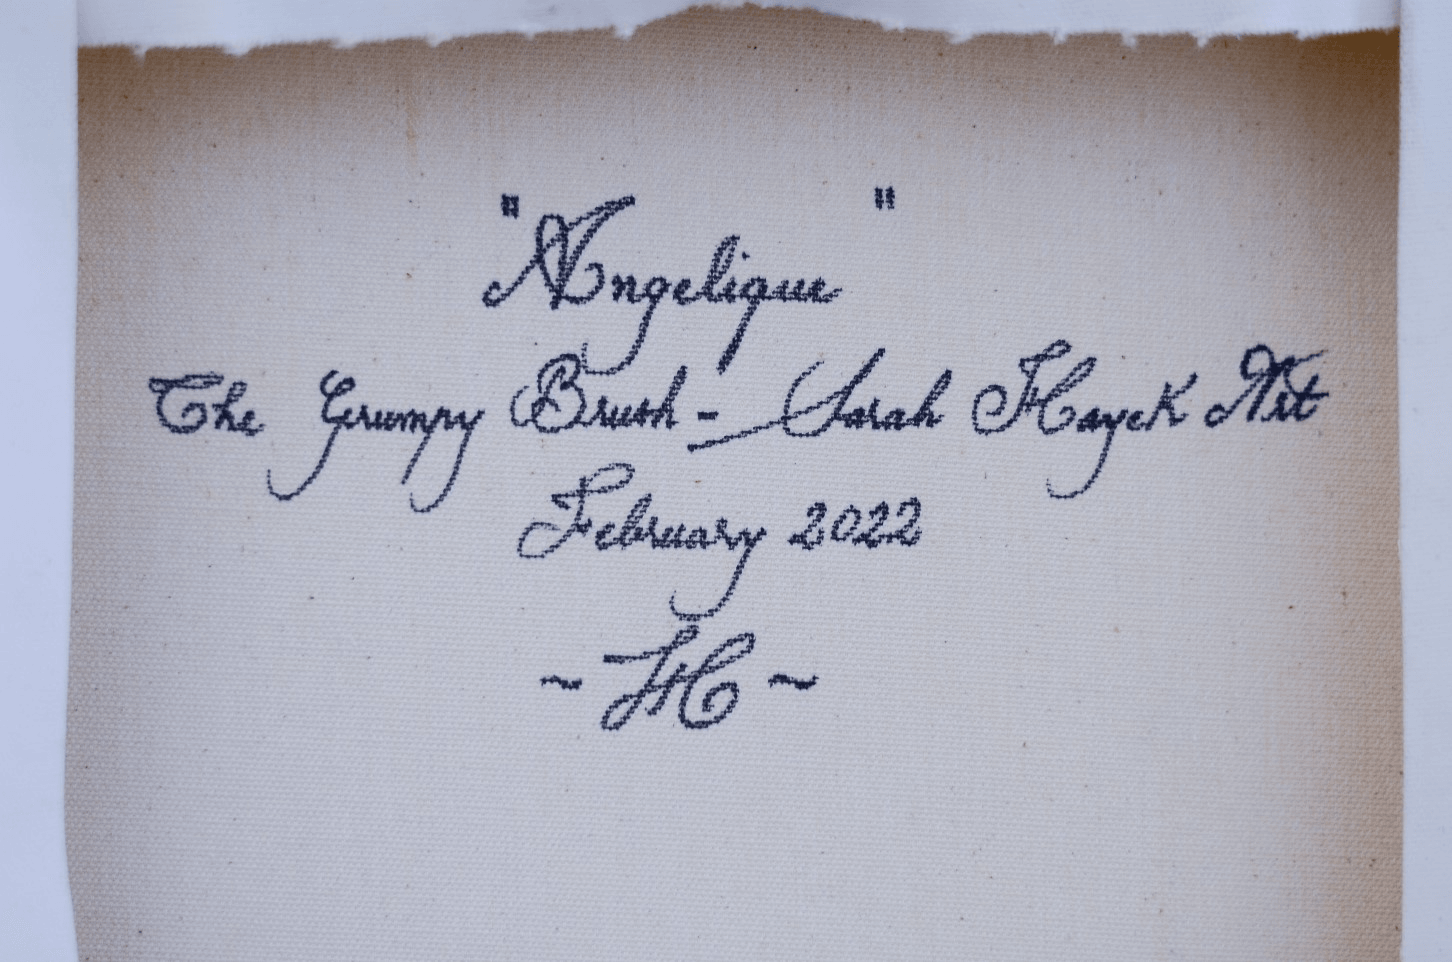 "Angelique"
The Grumpy Brush - Sarah Hayek Art
February 2022